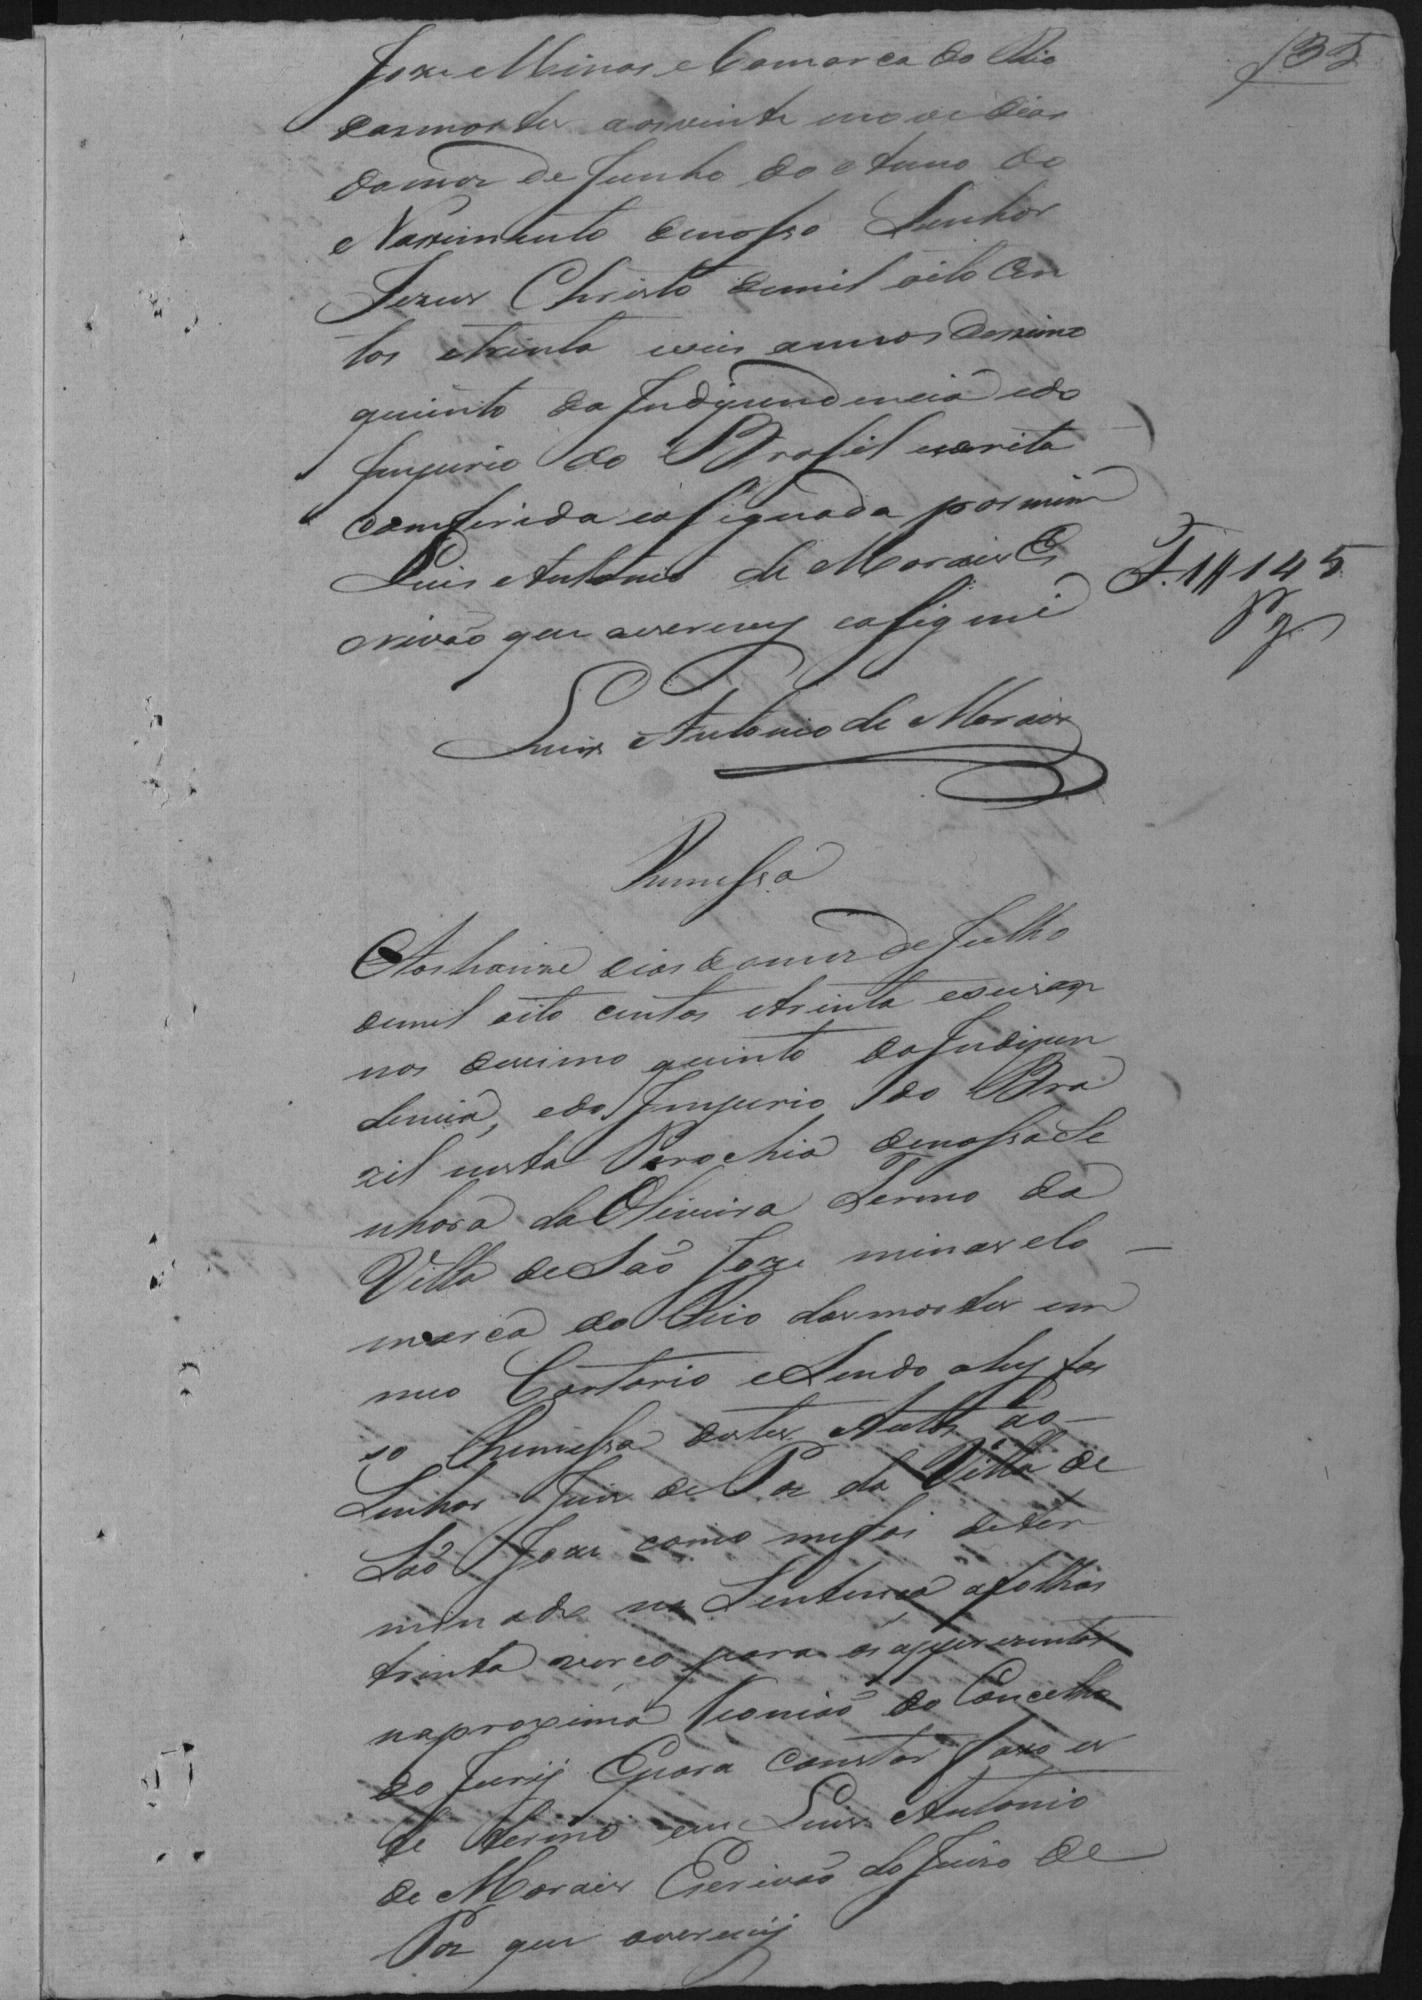 135
Joze Minas e Comarca do Rio
dasmortes aos vinte nove dias
domez de Junho do Anno do
Nassimento denosso Senhor
Jezus Christo demil oito cen
tos etrinta eseis annos dessimo
quinto da Indipendencia edo
Imperio do Brasil escrita
comferida easignada por mim
Luis Antonio de Morais Es
crivão que aescrevy easignei
Luis Antonio de Morais
Remessa
Aos honze dias domez de Julho
demil oito centos etrinta eseis an
nos dessimo quinto da Indipen
dencia, edo Imperio do Bra
zil nesta Parochia denossa Se
nhora da Oliveira Termo da
Villa de São Joze minas eCo
marca do Rio das mortes em
meo Cartorio eSendo ahy fa
so Remessa destes Autos ao
Senhor Juis de Paz da Villa de
São Joze como mefoi deter
minado na Sentensa afolhas
trinta verço para os apprezentar
naproxima Reonião do Concelho
do Jury Epara constar faso es
te termo eu Luis Antonio
de Morais Escrivão do Juizo de
Paz que oescrevy